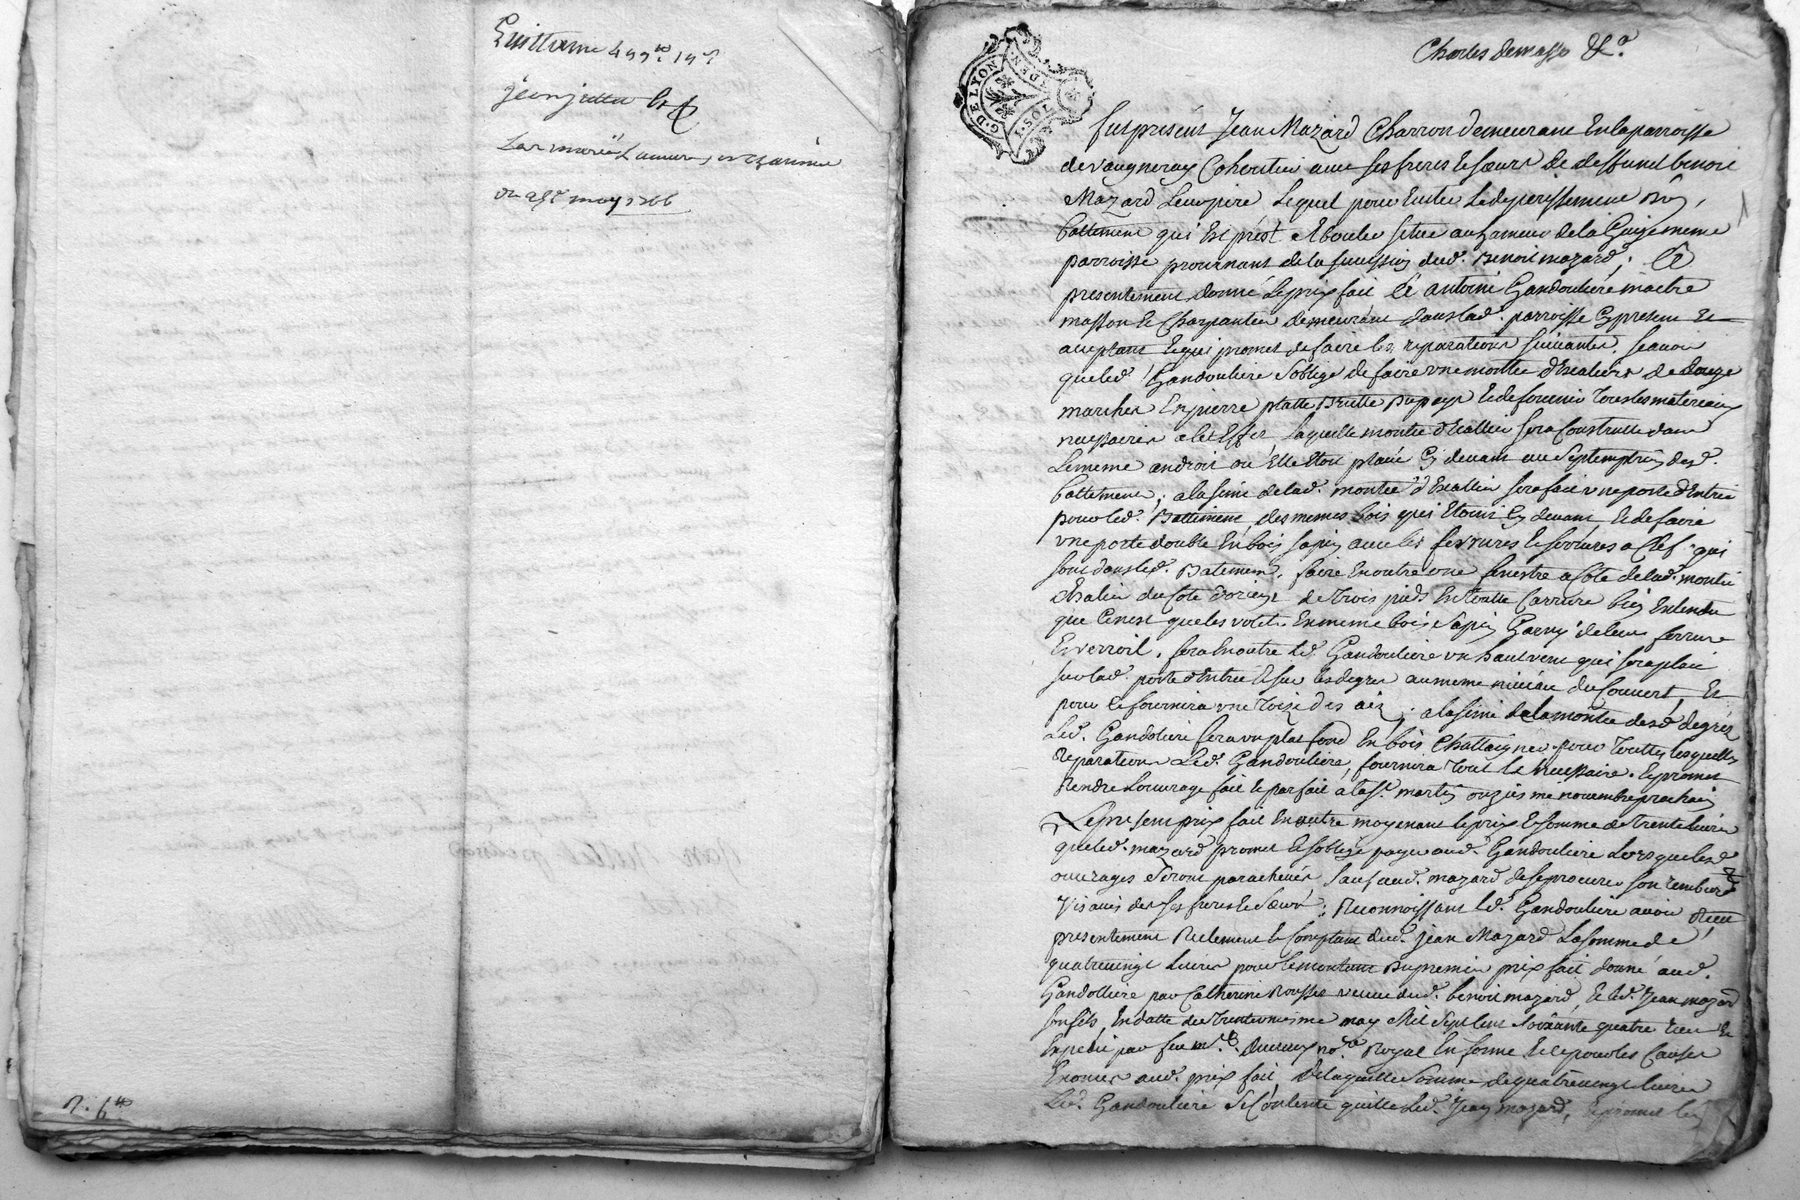 Guillaume
jean
du 25e may 1766
2. 6 tt
Charles demasso &c.a
G. D. LYON
Fut présent Jean Mazard Charron demeurant En la parroisse
de vaugneray Coheritier avec ses freres Et soeurs de deffunt benoit
Mazard Leur pere Lequel pour Eviter Le deperissement D'un
battiment qui Est prest a Ecrouler situé au hameau de la même
parroisse provenant de la succession dud. Benoit mazard, a
presentement donné Le prix fait a antoine Gandouliere maitre
masson Et Charpentier demeurant dans lad. parroisse Cy present Et
acceptant Et qui promet de faire les reparations suivantes, sçavoir
que led. Gandouliere s'oblige de faire une montée d'Escaliers de douze
marches En pierre platte Brutte Du pays Et de fournir Tous les materiaux
necessaires a cet Effet, Laquelle montée d'Escallier sera Construitte dans
Le meme androit ou Elle Etoit placée Cy devant au septemptrion dud.
battiment; a la sime de lad. montée d'Escallier sera fait une porte d'Entrée
pour led. Battiment, des memes bois qui Etoient Cy devant, Et de faire
une porte double En bois sapin avec les ferrures Et serrures a Clef qui
sont dans led. Batiment, faire En outre une fenestre a Coté de lad. montée
d'Escalier du Coté d'orient de trois pieds En toutte Carrure bien Entendu
que Ce n'est que les volets En meme bois sapin Garny de leur ferrure
Et verroil, fera En outre led. Gandouliere un hautvent qui sera placé
sur lad. porte d'Entrée Et sur les degrés au meme niveau du Couvert, Et
pour Ce fournira une Toize des aix; a la sime de la montée desd. degrez
Led. Gandoliere fera un plat fond En bois Chattaignier pour Touttes lesquelles
Reparations Led. Gandouliere, fournira Tout le necessaire. Et promet
Rendre L'ouvrage fait Et parfait a la St. martin onzieme novembre prochain
Le present prix fait En outre moyenant le prix Et somme de Trente livres
que led. mazard promet Et s'oblige payer aud. Gandouliere Lors que lesd.
ouvrages seront parachevés, Sauf aud. mazard de se procurer son rembours
Vis a vis de ses freres Et soeurs; Reconnoissant led. Gandouliere avoir Receu
presentement Reelement Et Comptant dud. jean Mazard La somme de
quatrevingt livres pour le montant Du premier prix fait donné aud.
Gandolliere par Catherine Rousset veuve dud. benoit mazard, Et led. Jean mazard
son fils, En datte du Trente unieme may Mil Sept Cent Soixante quatre Receu Et
Expedié par feu Me. no.re Royal En forme Et Ce pour les Causes
Enoncées aud. prix fait, De laquelle Somme de quatrevingt livres
Led. Gandouliere se Contente quitte led. Jean mazard, Et promet les